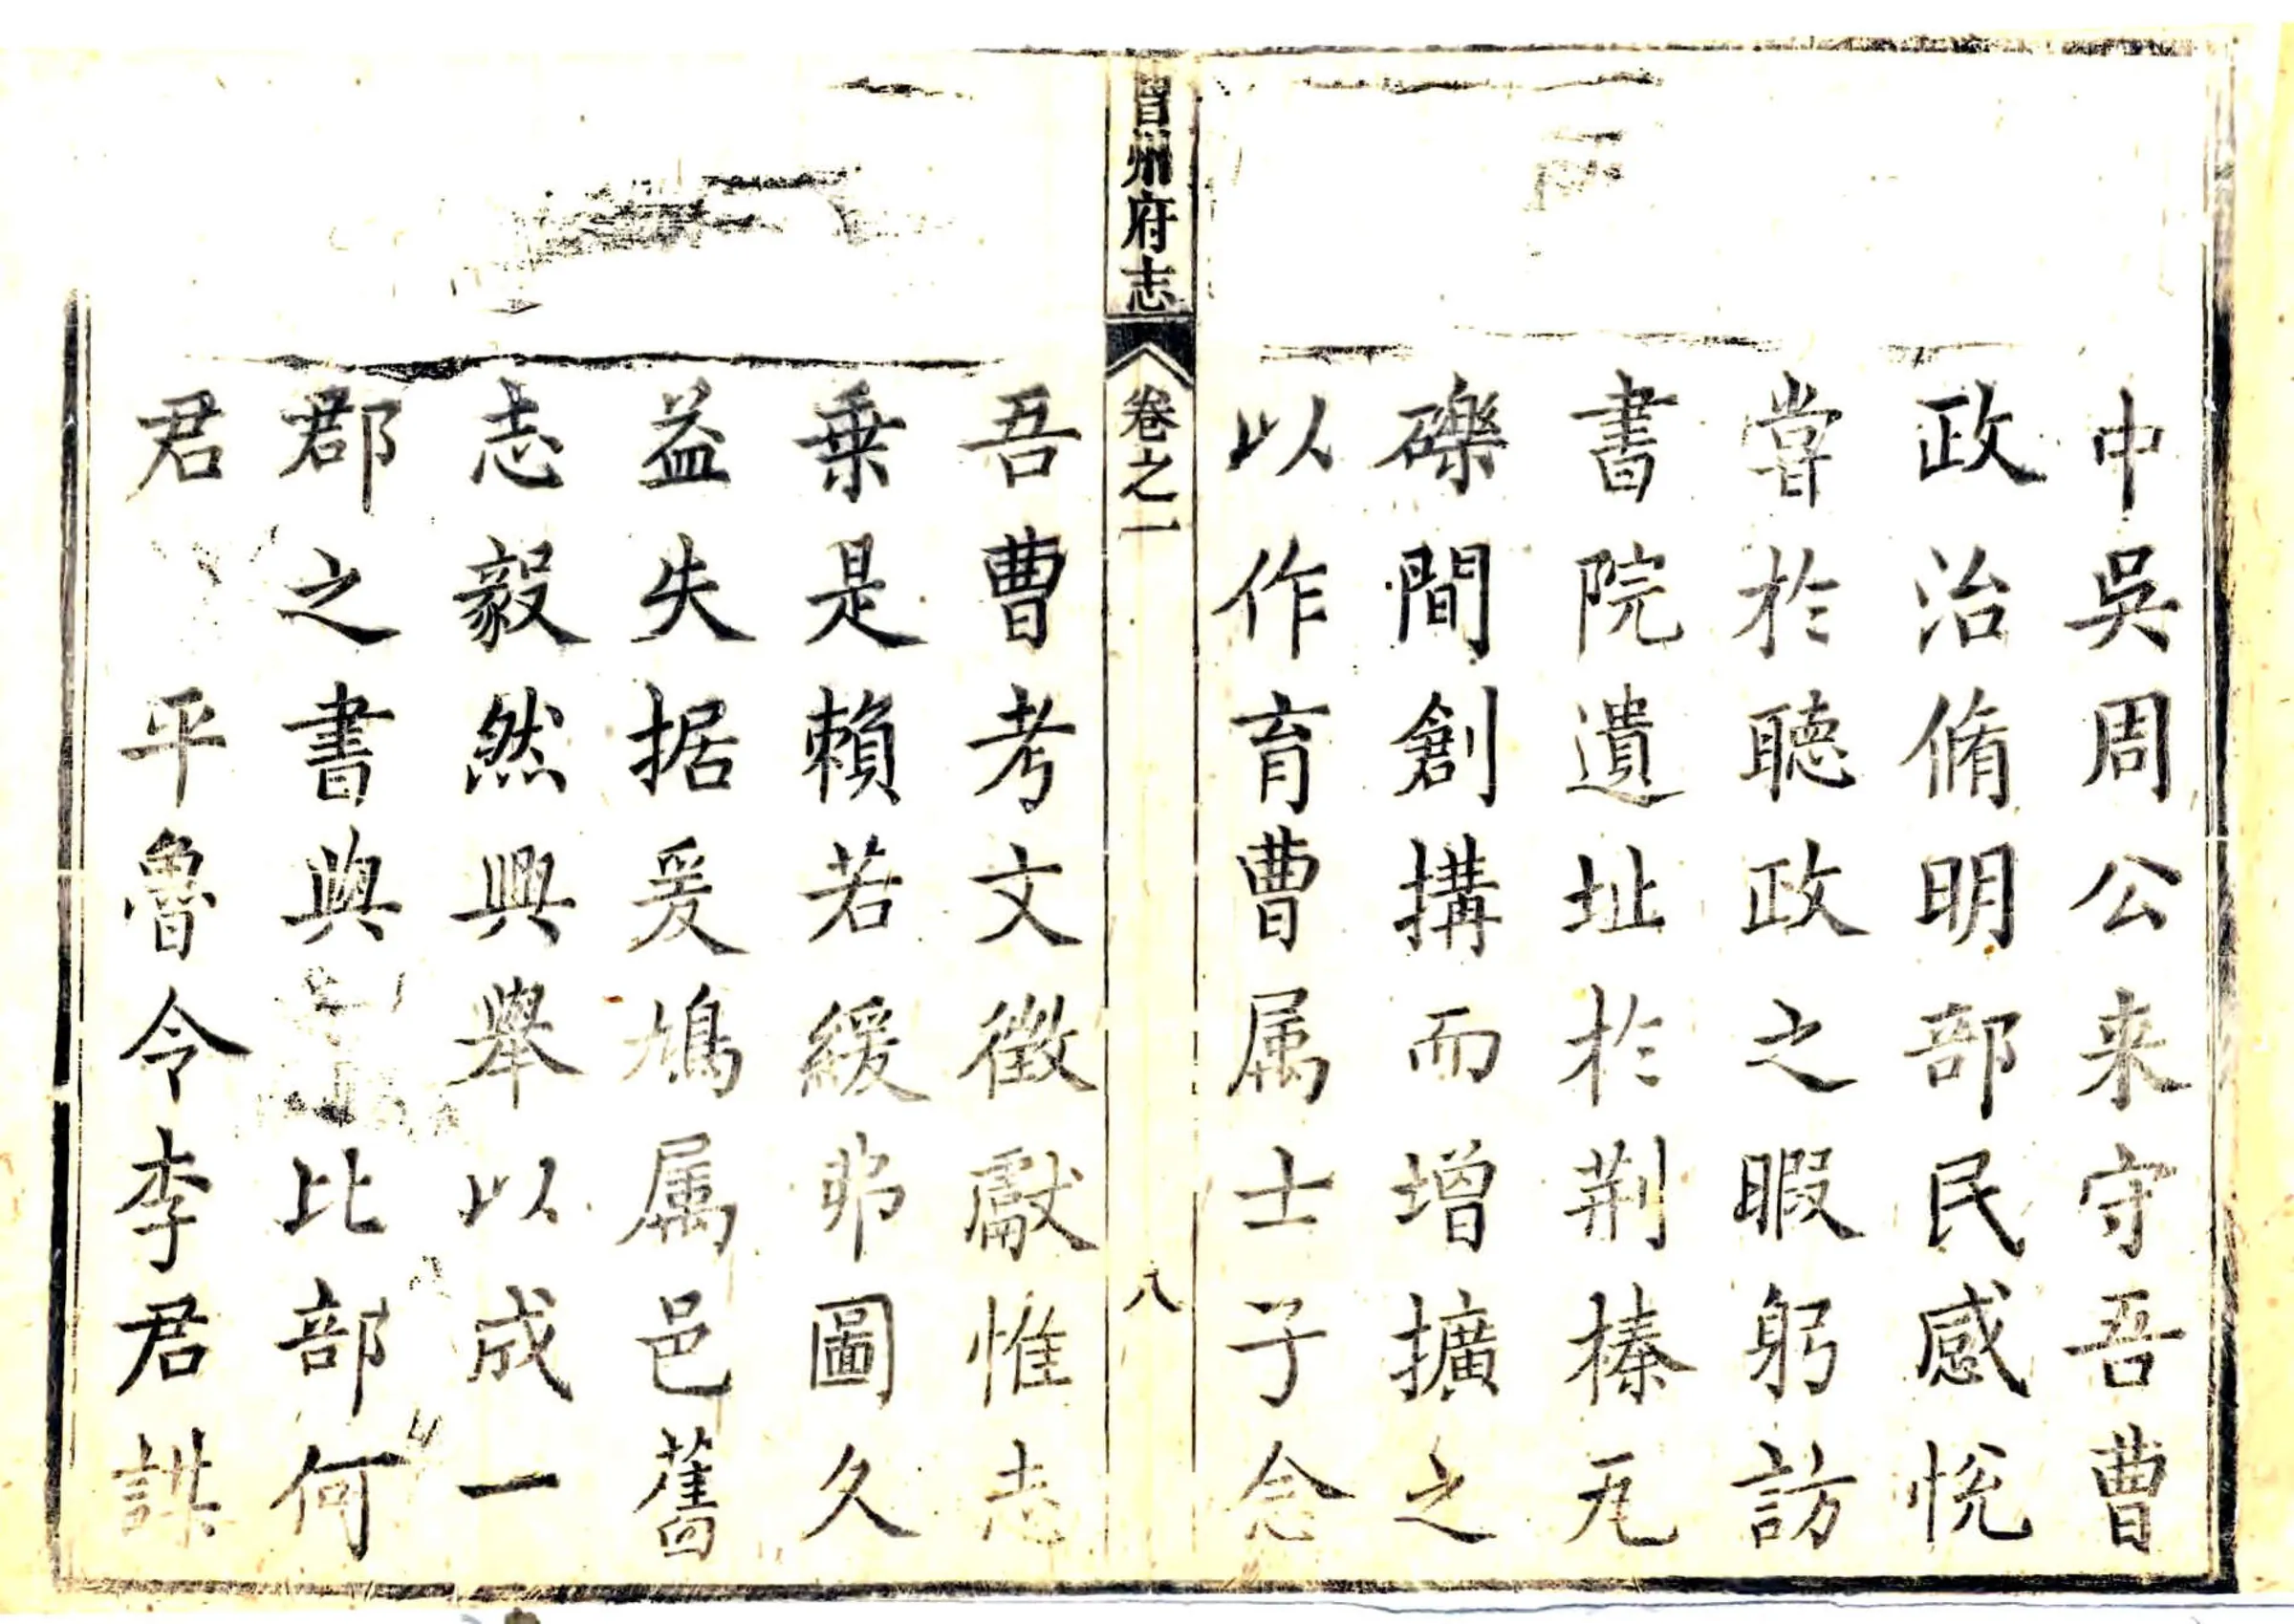 中吳周公来守吾曹
政治脩明部民感悅
甞於聽政之暇躬訪
書院遺址於荆榛瓦
礫間創搆而增擴之
以作育曹属士子念
州府志 卷之一 八
吾曹考文徵獻惟志
乗是賴若緩弗圖久
益失据爰鳩属邑舊
志毅然興舉以成一
郡之書與 比部何
君 平魯令李君謀